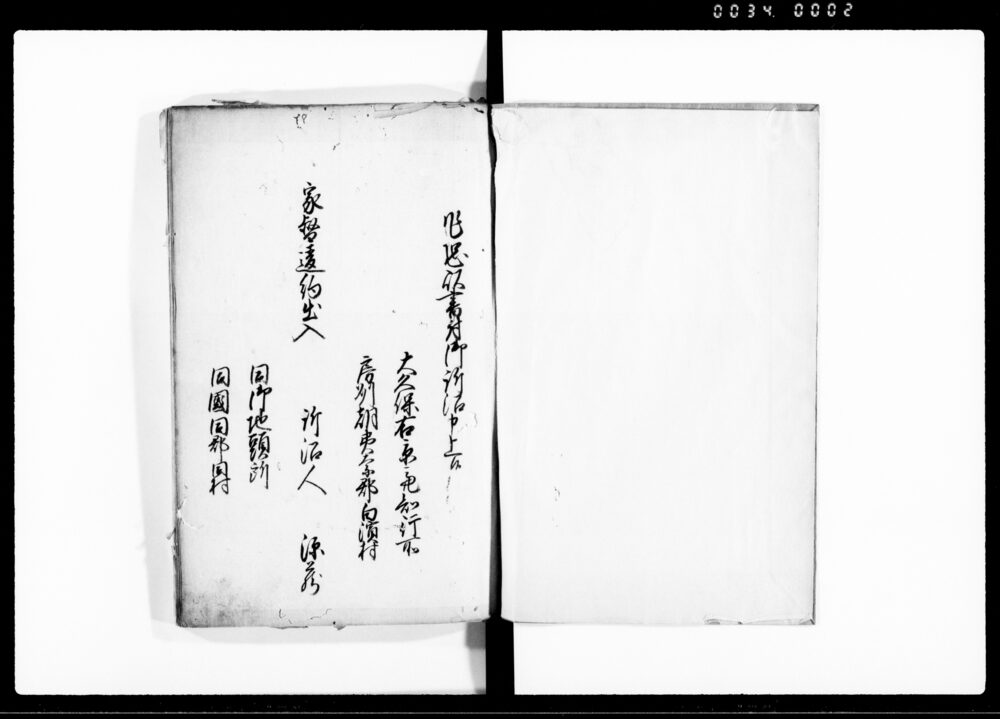 0034 0002
乍恐以書付御訴訟申上候
大久保右京亮知行所
房州朝夷郡白濱村
家督違約出入
訴訟人 源蔵
同御地頭所
同國同郡同村